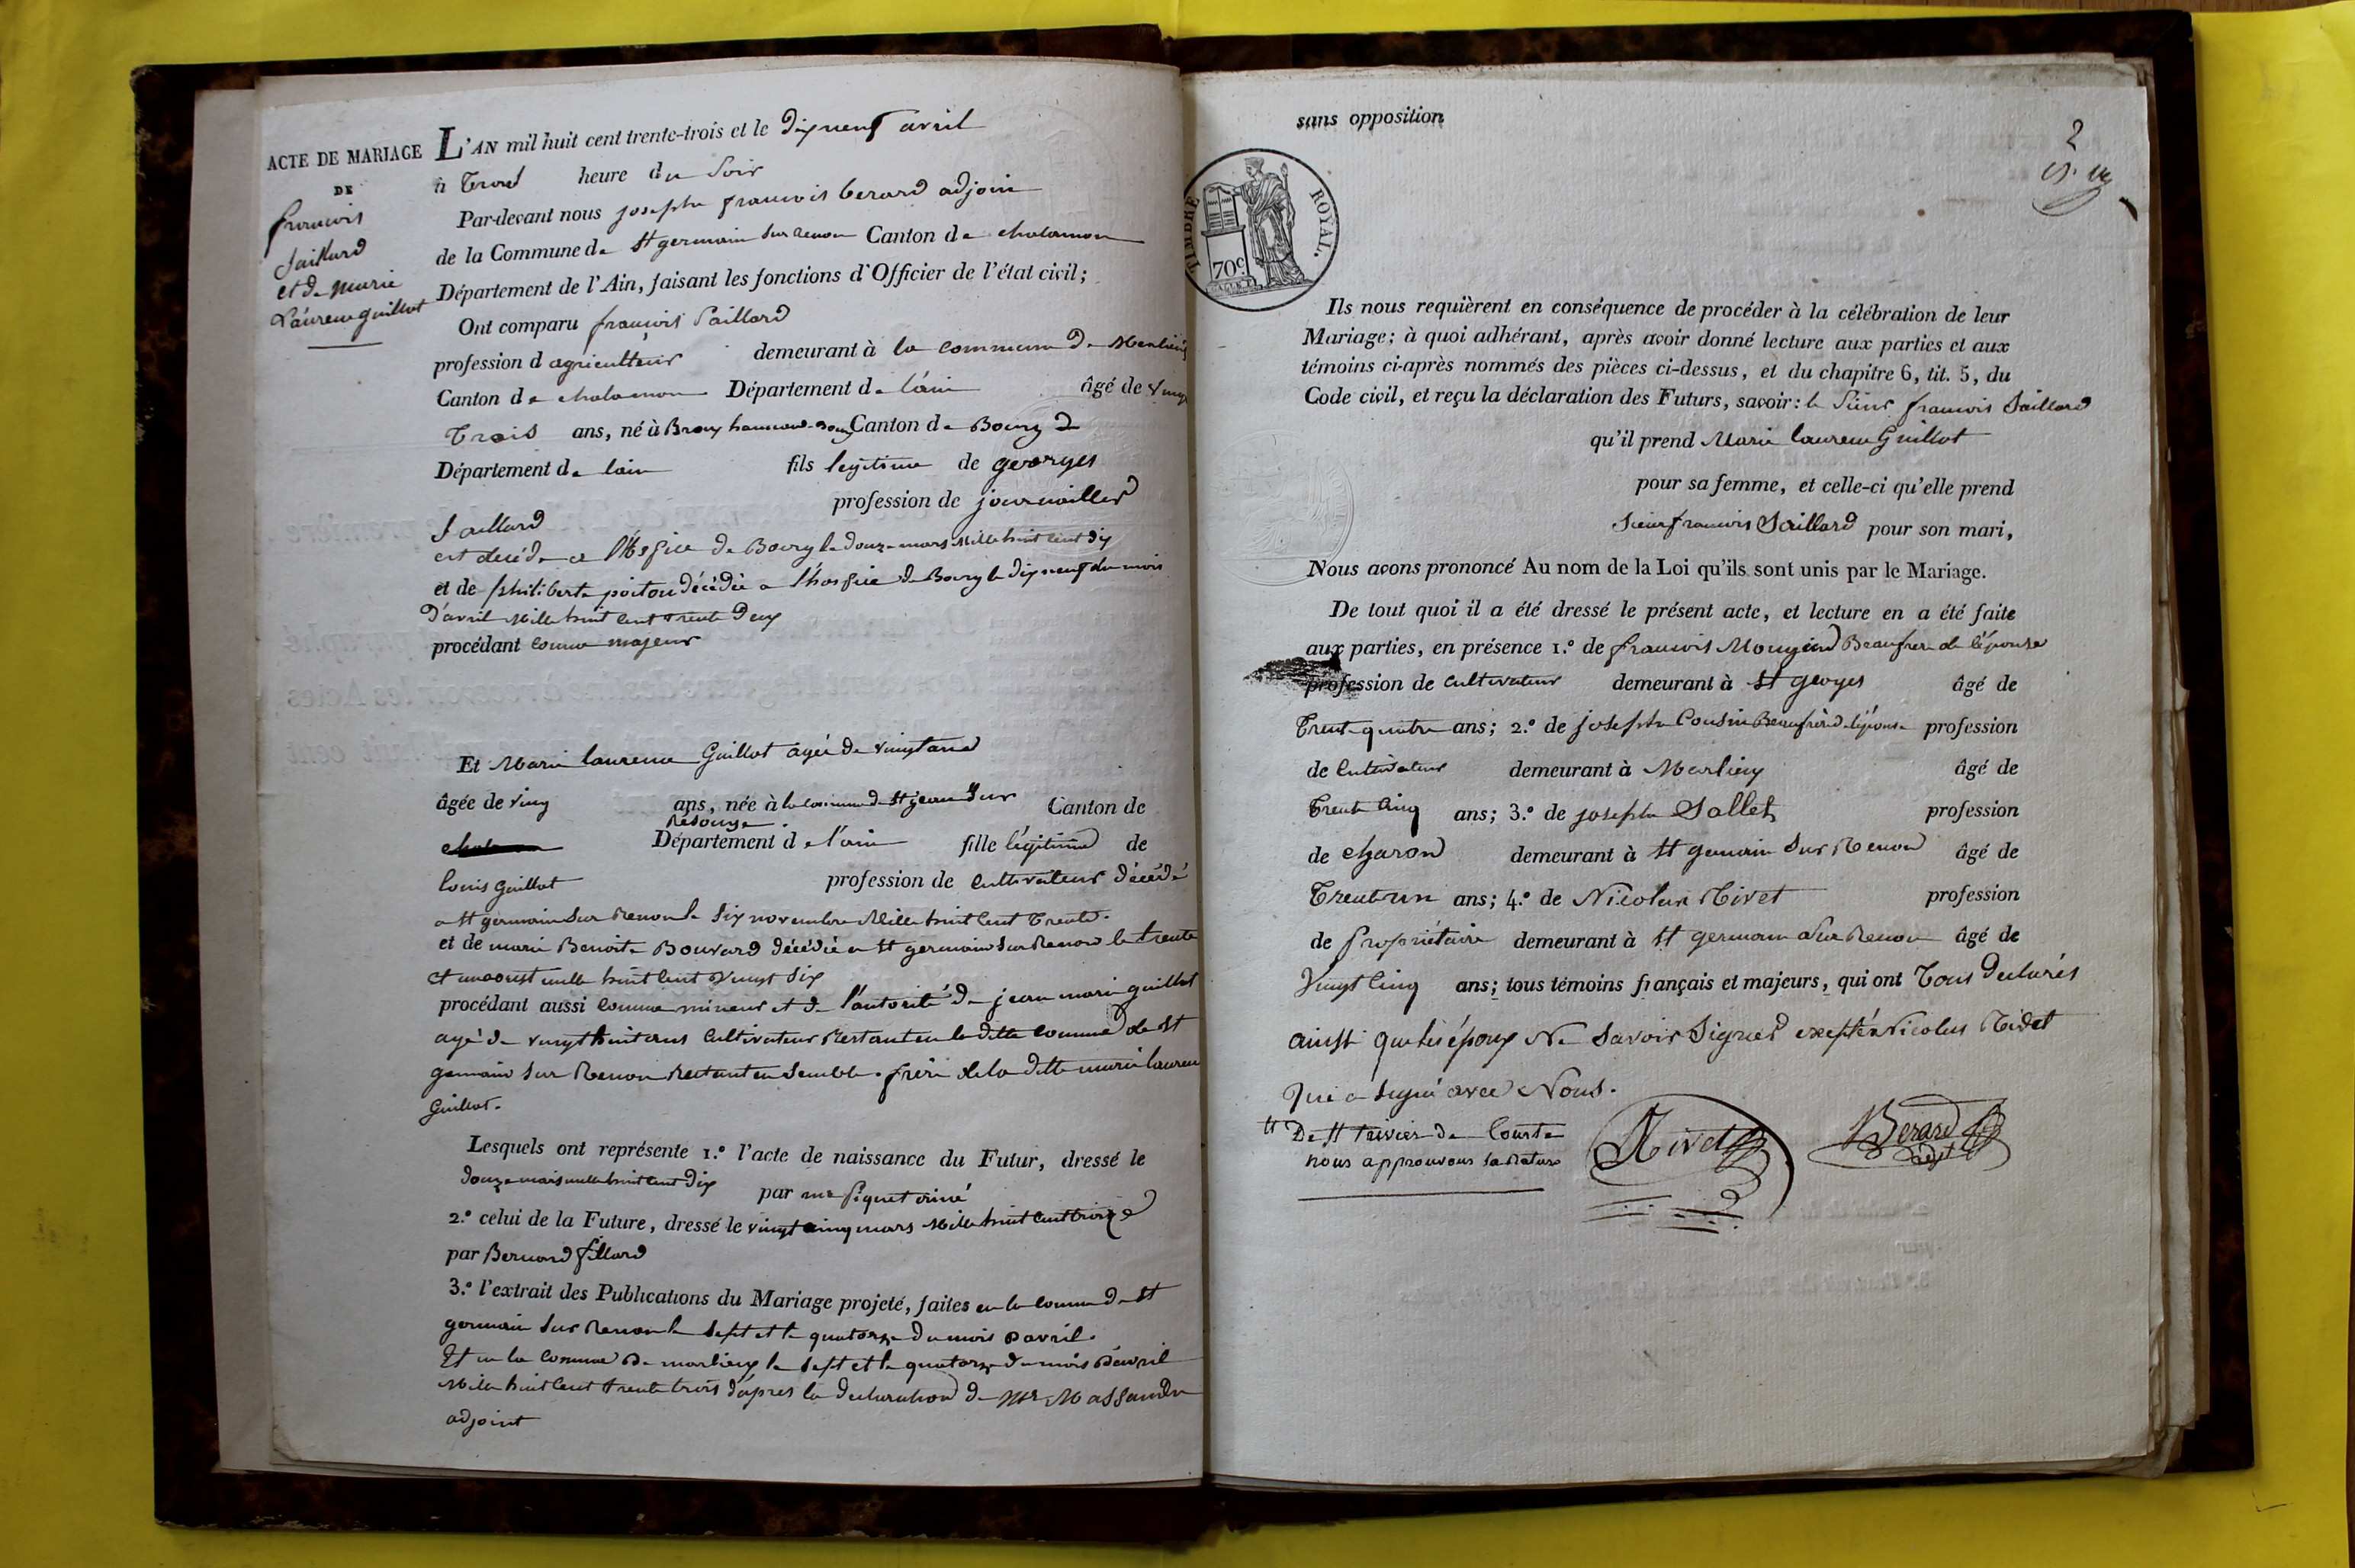 ACTE DE MARIAGE
DE
francois
Saillard
et de marie
Laurence guillot
L'AN mil huit cent trente-trois et le dix neuf avril
à heure du Soir
Par-devant nous joseph francois berard adjoin
de la Commune de St germain Sur renon Canton de chalamon
Département de l'Ain, faisant les fonctions d'Officier de l'état civil;
Ont comparu françois Saillard
profession d agriculteur demeurant à la commune de
Canton de chalamon Département de l'ain âgé de
Trois ans, né à Canton de Bourg
Département de lain fils legitime de georges
profession de journaillier
Saillard
est décédé a de Bourg le douze mars mille huit cent dix
et de philiberte poiton décédée a l'hospice de Bourg le dix neuf du mois
d'avril Mille huit cent trente deux
procédant comme majeur
Et Marie laurence Guillot agée de vingt ans
âgée de ans, née à la commune de St jean Sur Canton de
résouze
Département d e l'ain fille légitime de
louis Guillot profession de cultivateur décédé
a St germain Sur Renon le Six novembre Mille huit cent Trente.
et de marie Benoite Bouvard décédée a St germain Sur Renon le trente
et un aoust mille huit cent vingt Six
procédant aussi comme mineur et de l'autorité de jean marie guillot
agé de vingt huit ans cultivateur Restant en la ditte comune de St
germain Sur Renon Restant en semble. frère de la ditte marie lauren
Guillot.
Lesquels ont représente 1.º l'acte de naissance du Futur, dressé le
douze mars mille huit cent dix par mr
2.º celui de la Future, dressé le vingt cinq mars Mille huit cent treize
par Bernard fillard
3.º l'extrait des Publications du Mariage projeté, faites en la comune de St
germain Sur Renon le Sept et le quatorze du mois d avril.
Et en la Comune de marlieux le Sept et le quatorze du mois d'avril
Mille huit cent trente trois d'apres la declaration de Mr
adjoint
sans opposition
2
TIMBRE ROYAL.
70c.
Ils nous requièrent en conséquence de procéder à la célébration de leur
Mariage; à quoi adhérant, après avoir donné lecture aux parties et aux
témoins ci-après nommés des pièces ci-dessus, et du chapitre 6, tit. 5, du
Code civil, et reçu la déclaration des Futurs, savoir: le Sieur francois Saillard
qu'il prend Marie laurence Guillot
pour sa femme, et celle-ci qu'elle prend
Sieur francois Saillard pour son mari,
Nous avons prononcé Au nom de la Loi qu'ils sont unis par le Mariage.
De tout quoi il a été dressé le présent acte, et lecture en a été faite
aux parties, en présence 1.º de francois Beaufrere de l'épouse
profession de cultivateur demeurant à St georges âgé de
Trente quatre ans; 2.º de joseph Cousin Beaufrère de l'épouse profession
de Cultivateur demeurant à Marlieux âgé de
Trente Cinq ans; 3.º de joseph Sallet profession
de charon demeurant à St germain Sur Renon âgé de
Trente un ans; 4.º de Nicolas Rivet profession
de propriétaire demeurant à St germain Sur Renon âgé de
Vingt Cinq ans; tous témoins français et majeurs, qui ont Tous declarés
ainsi que les époux Ne Savoir Signer excepté Nicolas Rivet
Qui a Signé avec Nous.
tt De St trivier de Courte
nous approuvons la rature
Rivet
Berard
adjt